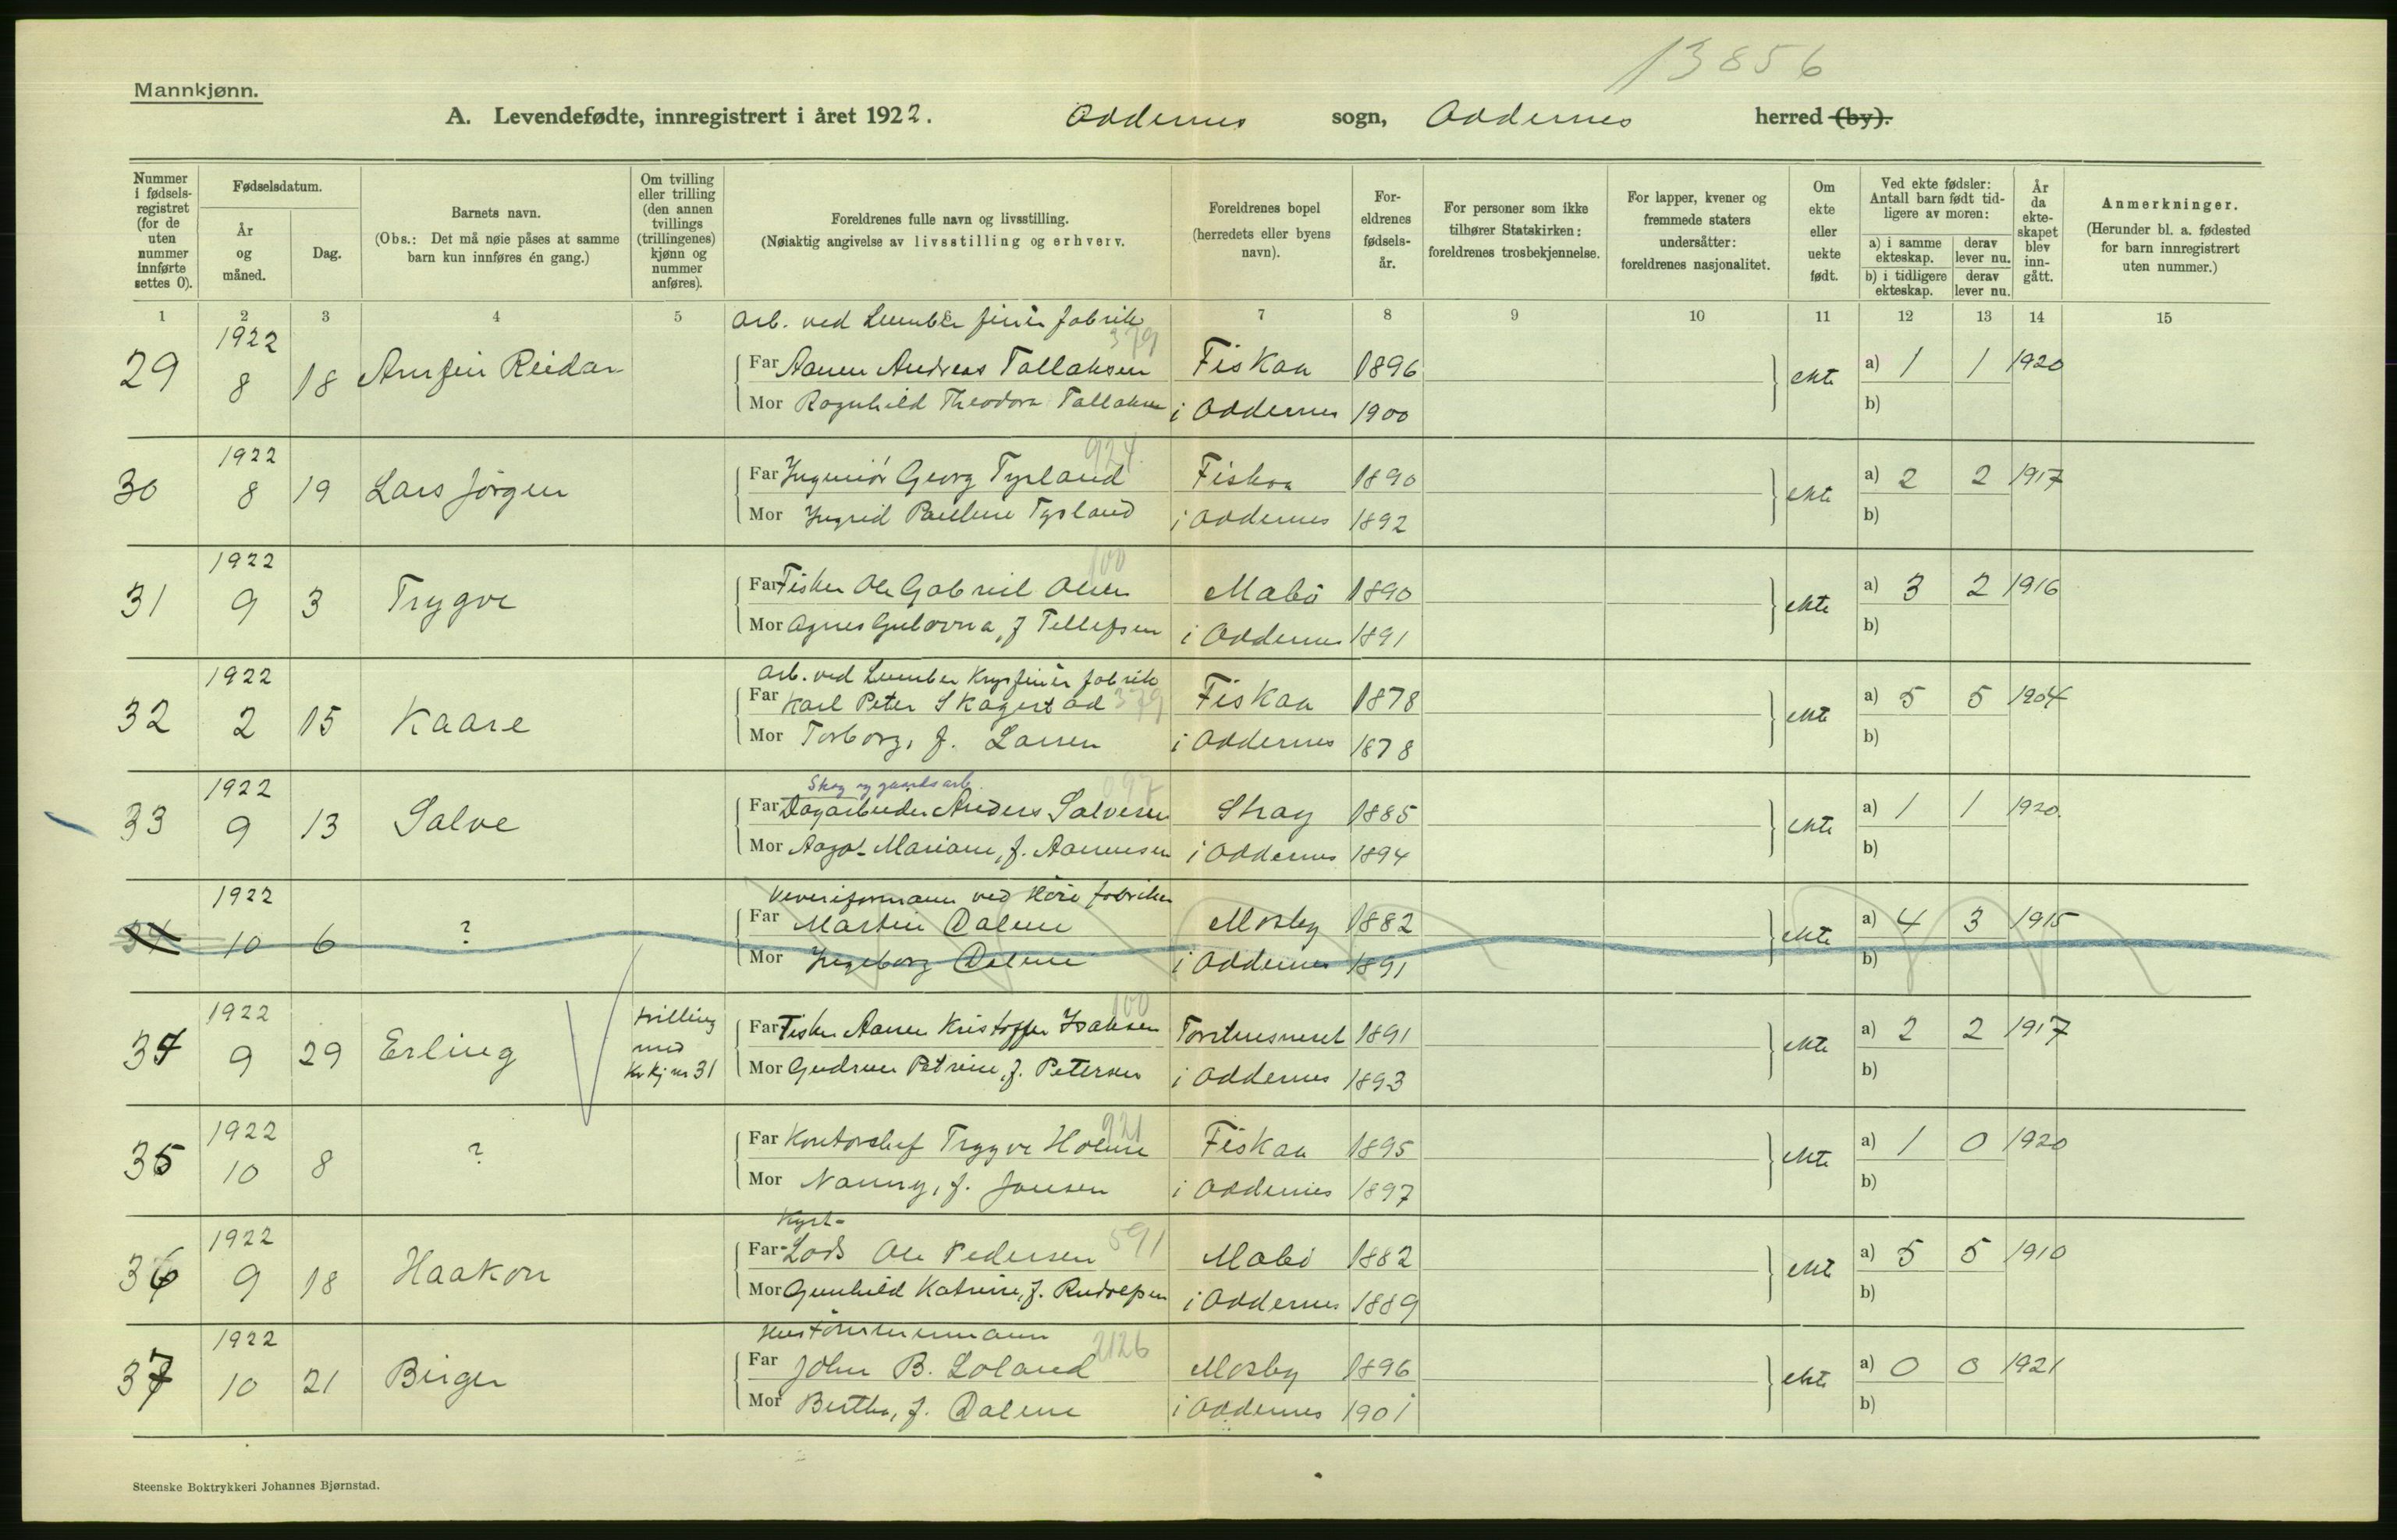 13856
Mannkjønn.
A. Levendefødte, innregistrert i året 1922. Oddernes sogn, Oddernes herred (by).
Nummer i fødselsregistret (for de uten nummer innførte settes 0).
Fødselsdatum.
År og måned.
Dag.
Barnets navn.
(Obs.: Det må nøie påses at samme barn kun innføres én gang.)
Om tvilling eller trilling (den annen tvillings (trillingenes) kjønn og nummer anføres).
Foreldrenes fulle navn og livsstilling.
(Nøiaktig angivelse av livsstilling og erhverv.
Foreldrenes bopel (herredets eller byens navn).
Foreldrenes fødselsår.
For personer som ikke tilhører Statskirken: foreldrenes trosbekjennelse.
For lapper, kvener og fremmede staters undersåtter: foreldrenes nasjonalitet.
Om ekte eller uekte født.
Ved ekte fødsler: Antall barn født tidligere av moren:
a) i samme ekteskap. derav lever nu.
b) i tidligere ekteskap. derav lever nu.
År da ekteskapet blev inngått.
Anmerkninger.
(Herunder bl. a. fødested for barn innregistrert uten nummer.)
1 2 3 4 5 7 8 9 10 11 12 13 14 15
Arb. ved Lumber finér fabrik 379
29 1922 8 18 Arnfin Reidar Far Aanen Andreas Tallaksen Fiskaa 1896 ekte a) 1 1 1920
Mor Ragnhild Theodora Tallaksen i Oddernes 1900 b)
924
30 1922 8 19 Lars Jörgen Far Ingeniör Georg Tysland Fiskaa 1890 ekte a) 2 2 1917
Mor Ingrid Pauline Tysland i Oddernes 1892 b)
100
31 1922 9 3 Trygve Far Fisker Ole Gabriel Olsen Mabö 1890 ekte a) 3 2 1916
Mor Agnes Gulovna, f Tellefsen i Oddernes 1891 b)
Arb. ved Lumber Krysfinér fabrik
32 1922 2 15 Kaare Far Karl Peter Skagestad 379 Fiskaa 1878 ekte a) 5 5 1904
Mor Torborg, f. Larsen i Oddernes 1878 b)
Skog og gaardsarb. 097
33 1922 9 13 Salve Far Dagarbeider Anders Salvesen Strag 1885 ekte a) 1 1 1920.
Mor Aagot Mariane, f. Aanensen i Oddernes 1894 b)
Veveriformann ved Höie fabriker
34 1922 10 6 ? Far Martin Dalene Mosby 1882 ekte a) 4 3 1915
Mor Ingeborg Dalene i Oddernes 1891 b)
100
34 1922 9 29 Erling tvilling med Kv kj nr 31 Far Fisker Aanen Kristoffer Isaksen Torstenesneset 1891 ekte a) 2 2 1917
Mor Gudrun Petrine, f. Petersen i Oddernes 1893 b)
921
35 1922 10 8 ? Far Kontorchef Trygve Holme Fiskaa 1895 ekte a) 1 0 1920
Mor Nanny, f. Jensen i Oddernes 1897 b)
Kyst-
36 1922 9 18 Haakon Far Lods Ole Pedersen 591 Mabö 1882 ekte a) 5 5 1910
Mor Gunhild Katrine, f. Rudolfsen i Oddernes 1889 b)
2126
37 1922 10 21 Birger Far John B. Loland Mosby 1896 ekte a) 0 0 1921
Mor Bertha, f. Dalene i Oddernes 1901 b)
Steenske Boktrykkeri Johannes Bjørnstad.